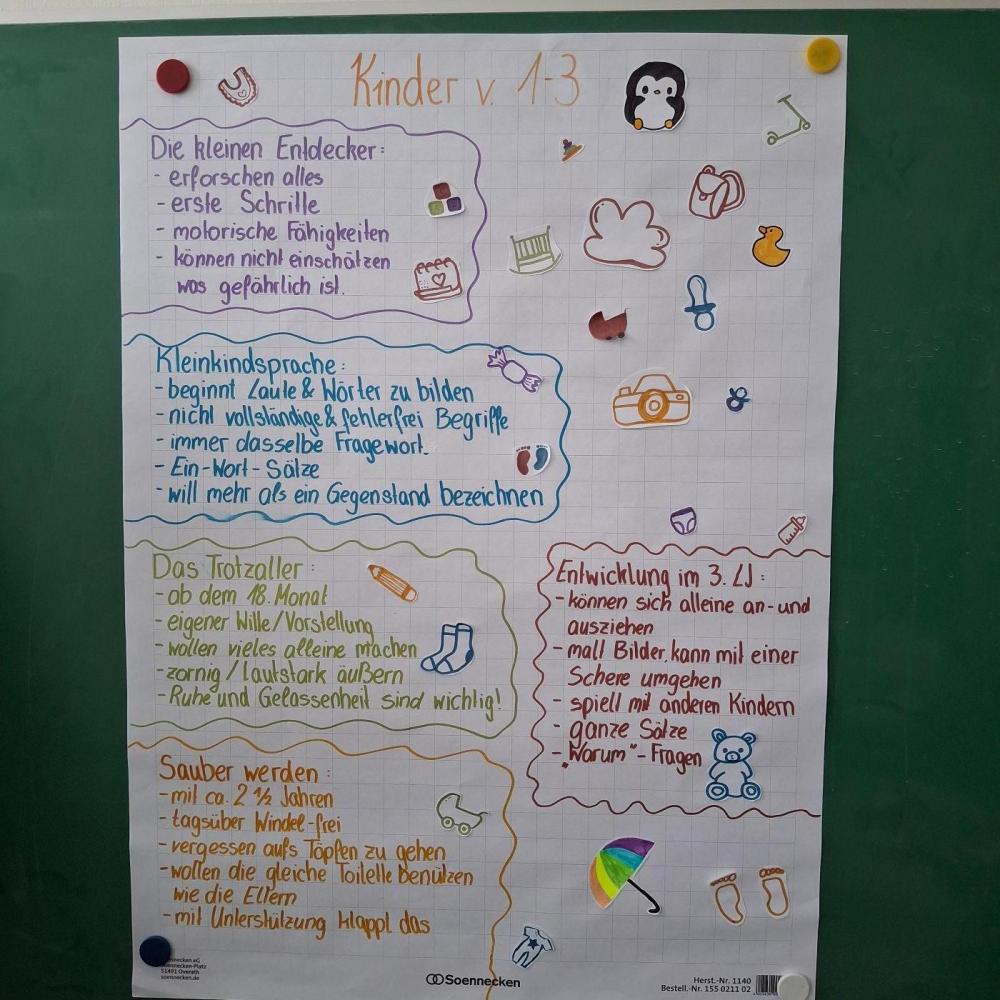 Kinder v. 1-3
Die kleinen Entdecker:
- erforschen alles
- erste Schritte
- motorische Fähigkeiten
- können nicht einschätzen
was gefährlich ist.
Kleinkindsprache:
- beginnt Laute & Wörter zu bilden
- nicht vollständige & fehlerfrei Begriffe
- immer dasselbe Fragewort.
- Ein-Wort-Sätze
- will mehr als ein Gegenstand bezeichnen
Das Trotzalter:
- ab dem 18. Monat
- eigener Wille/Vorstellung
- wollen vieles alleine machen
- zornig/Lautstark äußern
- Ruhe und Gelassenheit sind wichtig!
Entwicklung im 3. LJ:
- können sich alleine an- und
ausziehen
- malt Bilder, kann mit einer
Schere umgehen
- spielt mit anderen Kindern
- ganze Sätze
- „Warum"-Fragen
Sauber werden:
- mit ca. 2 ½ Jahren
- tagsüber Windel-frei
- vergessen aufs Töpfen zu gehen
- wollen die gleiche Toilette benützen
wie die Eltern
- mit Unterstützung klappt das
eG
-Platz
51491 Overath
soennecken.de
Soennecken
Herst.-Nr. 1140
Bestell.-Nr. 155 0211 02